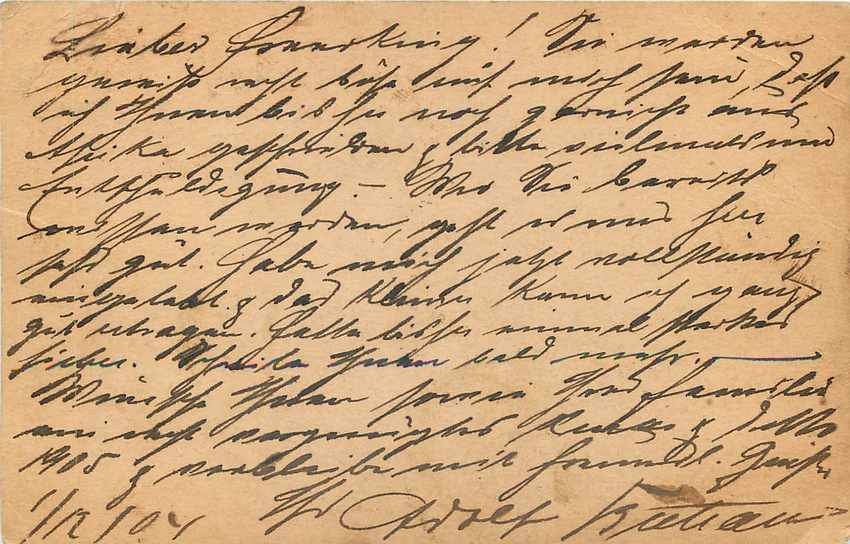 Lieber Franking! Sie werden
gewiß recht böse auf mich sein, daß
ich Ihnen bisher noch garnicht aus
Afrika geschrieben & bitte vielmals um
Entschuldigung – Wie Sie bereits
wissen werden, geht es mir hier
sehr gut. Habe mich jetzt vollständig
eingelebt & das Klima kann ich ganz
gut ertragen. Hatte bisher einmal starkes
Fieber. Schreibe Ihnen bald mehr. —
Wünsche Ihnen sowie Ihrer Familie
ein recht vergnügtes & dito
1905 & verbleibe mit freundl. Gruße
1/12/04 Ihr Adolf